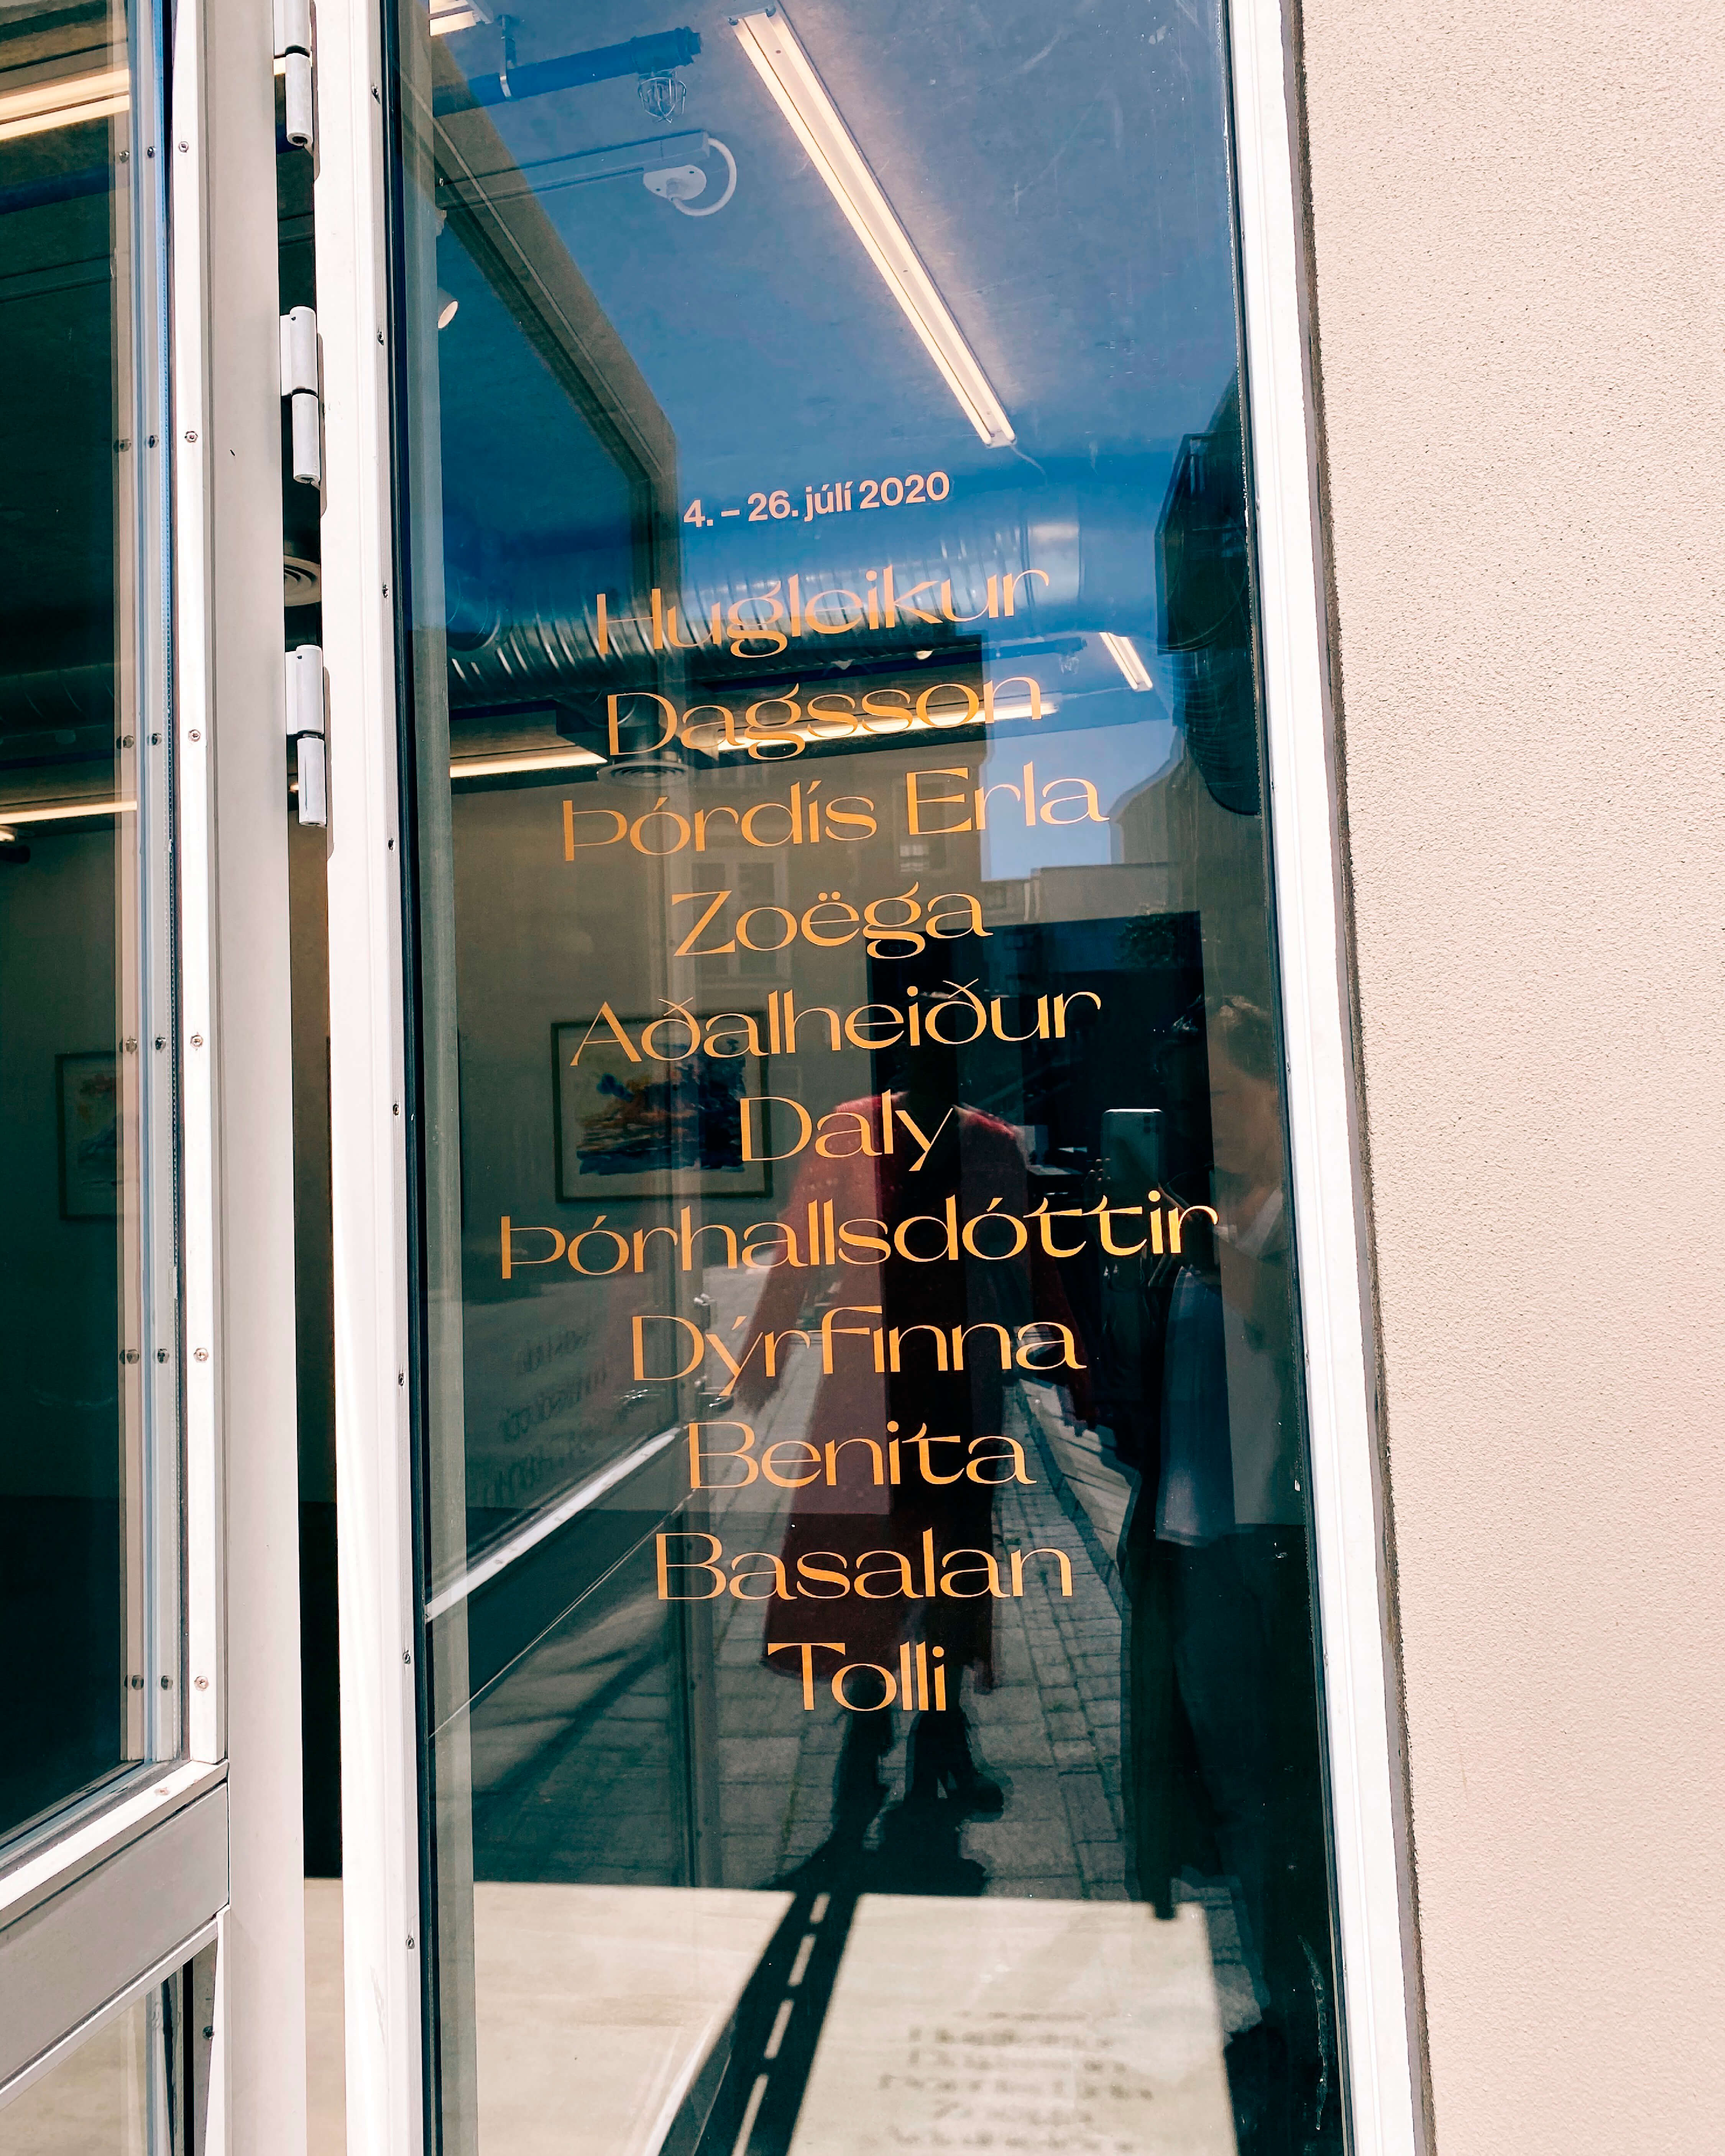 4. – 26. júlí 2020
Hugleikur
Dagsson
Þórdís Erla
Zoëga
Aðalheiður
Daly
Þórhallsdóttir
Dýrfinna
Benita
Basalan
Tolli